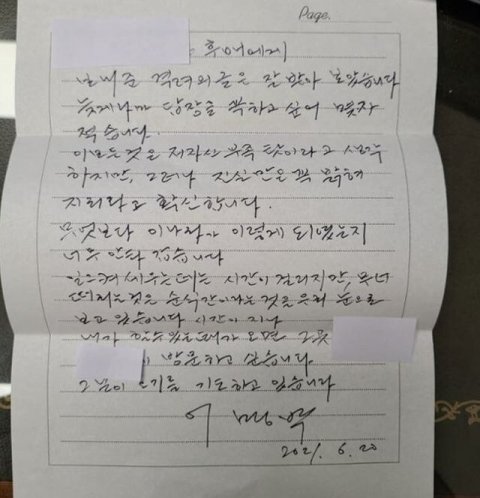 Page.
후배에게
보내준 격려의 글은 잘 받아 보았습니다
늦게나마 답장을 꼭 하고 싶어 몇자
적습니다.
이 모든 것은 저 자신 부족 탓이라고 생각
하지만, 그러나 진실만은 꼭 밝혀
지리라고 확신합니다.
무엇보다 이 나라가 이렇게 되었는지
너무 안타깝습니다
일으켜 세우는데는 시간이 걸리지만, 무너
떠리는 것은 순식간이라는 것을 우리 눈으로
보고 있습니다 시간이 지나
내가 할 수 있는 때가 오면 그곳
방문하고 싶습니다
그날이 오기를 기도하고 있습니다
이명박
2021. 6. 20